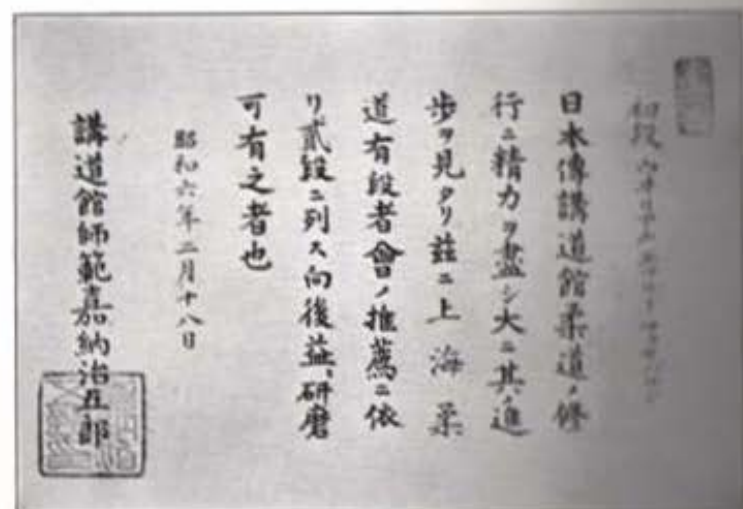 初段 ウヰリアム
日本傳講道館柔道ノ修
行ニ精力ヲ盡シ大ニ其ノ進
歩ヲ見タリ茲ニ上海柔
道有段者會ノ推薦ニ依
リ貳段ニ列ス向後益〻研磨
可有之者也
昭和六年二月十八日
講道館師範嘉納治五郎